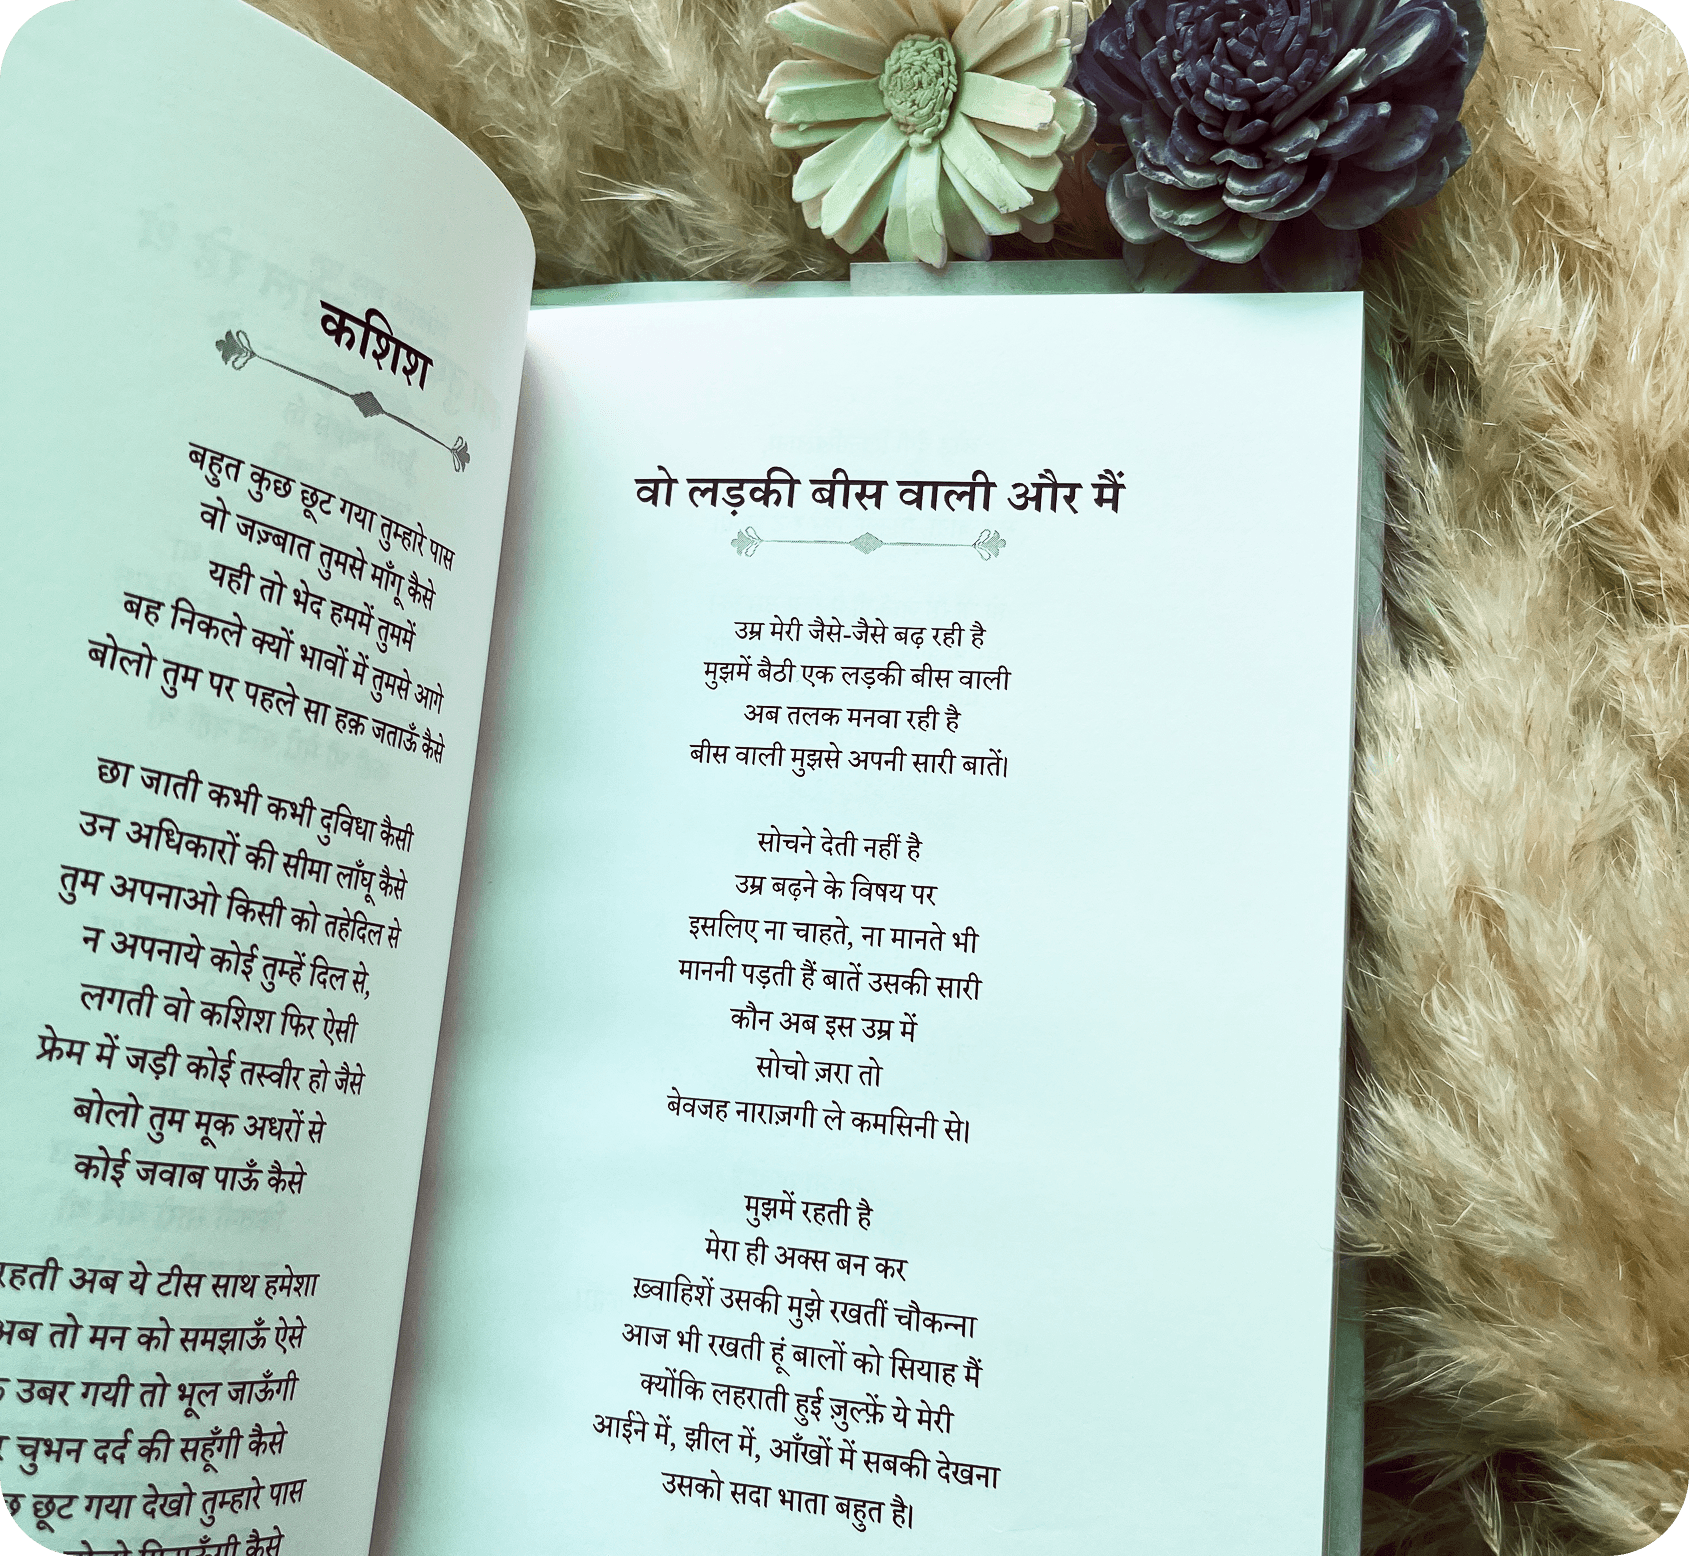 कशिश
बहुत कुछ छूट गया तुम्हारे पास
वो जज़्बात तुमसे माँगू कैसे
यही तो भेद हममें तुममें
बह निकले क्यों भावों में तुमसे आगे
बोलो तुम पर पहले सा हक़ जताऊँ कैसे
छा जाती कभी कभी दुविधा कैसी
उन अधिकारों की सीमा लाँघू कैसे
तुम अपनाओ किसी को तहेदिल से
न अपनाये कोई तुम्हें दिल से,
लगती वो कशिश फिर ऐसी
फ्रेम में जड़ी कोई तस्वीर हो जैसे
बोलो तुम मूक अधरों से
कोई जवाब पाऊँ कैसे
रहती अब ये टीस साथ हमेशा
अब तो मन को समझाऊँ ऐसे
उबर गयी तो भूल जाऊँगी
चुभन दर्द की सहूँगी कैसे
छूट गया देखो तुम्हारे पास
कैसे
वो लड़की बीस वाली और मैं
उम्र मेरी जैसे-जैसे बढ़ रही है
मुझमें बैठी एक लड़की बीस वाली
अब तलक मनवा रही है
बीस वाली मुझसे अपनी सारी बातें।
सोचने देती नहीं है
उम्र बढ़ने के विषय पर
इसलिए ना चाहते, ना मानते भी
माननी पड़ती हैं बातें उसकी सारी
कौन अब इस उम्र में
सोचो ज़रा तो
बेवजह नाराज़गी ले कमसिनी से।
मुझमें रहती है
मेरा ही अक्स बन कर
ख़्वाहिशें उसकी मुझे रखतीं चौकन्ना
आज भी रखती हूं बालों को सियाह मैं
क्योंकि लहराती हुई ज़ुल्फ़ें ये मेरी
आईने में, झील में, आँखों में सबकी देखना
उसको सदा भाता बहुत है।